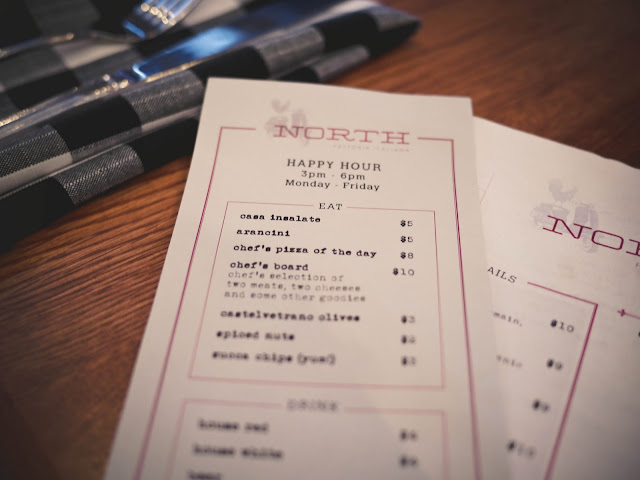 NORTH
HAPPY HOUR
3pm - 6pm
Monday - Friday
EAT
casa insalate $5
arancini $5
chef's pizza of the day $8
chef's board $10
chef's selection of
two meats, two cheeses
and some other goodies
castelvetrano olives $3
spiced nuts $2
zucca chips (yum!) $3
DRINK
house red
house white
NOR
AILS
$10
$9
$9
$10